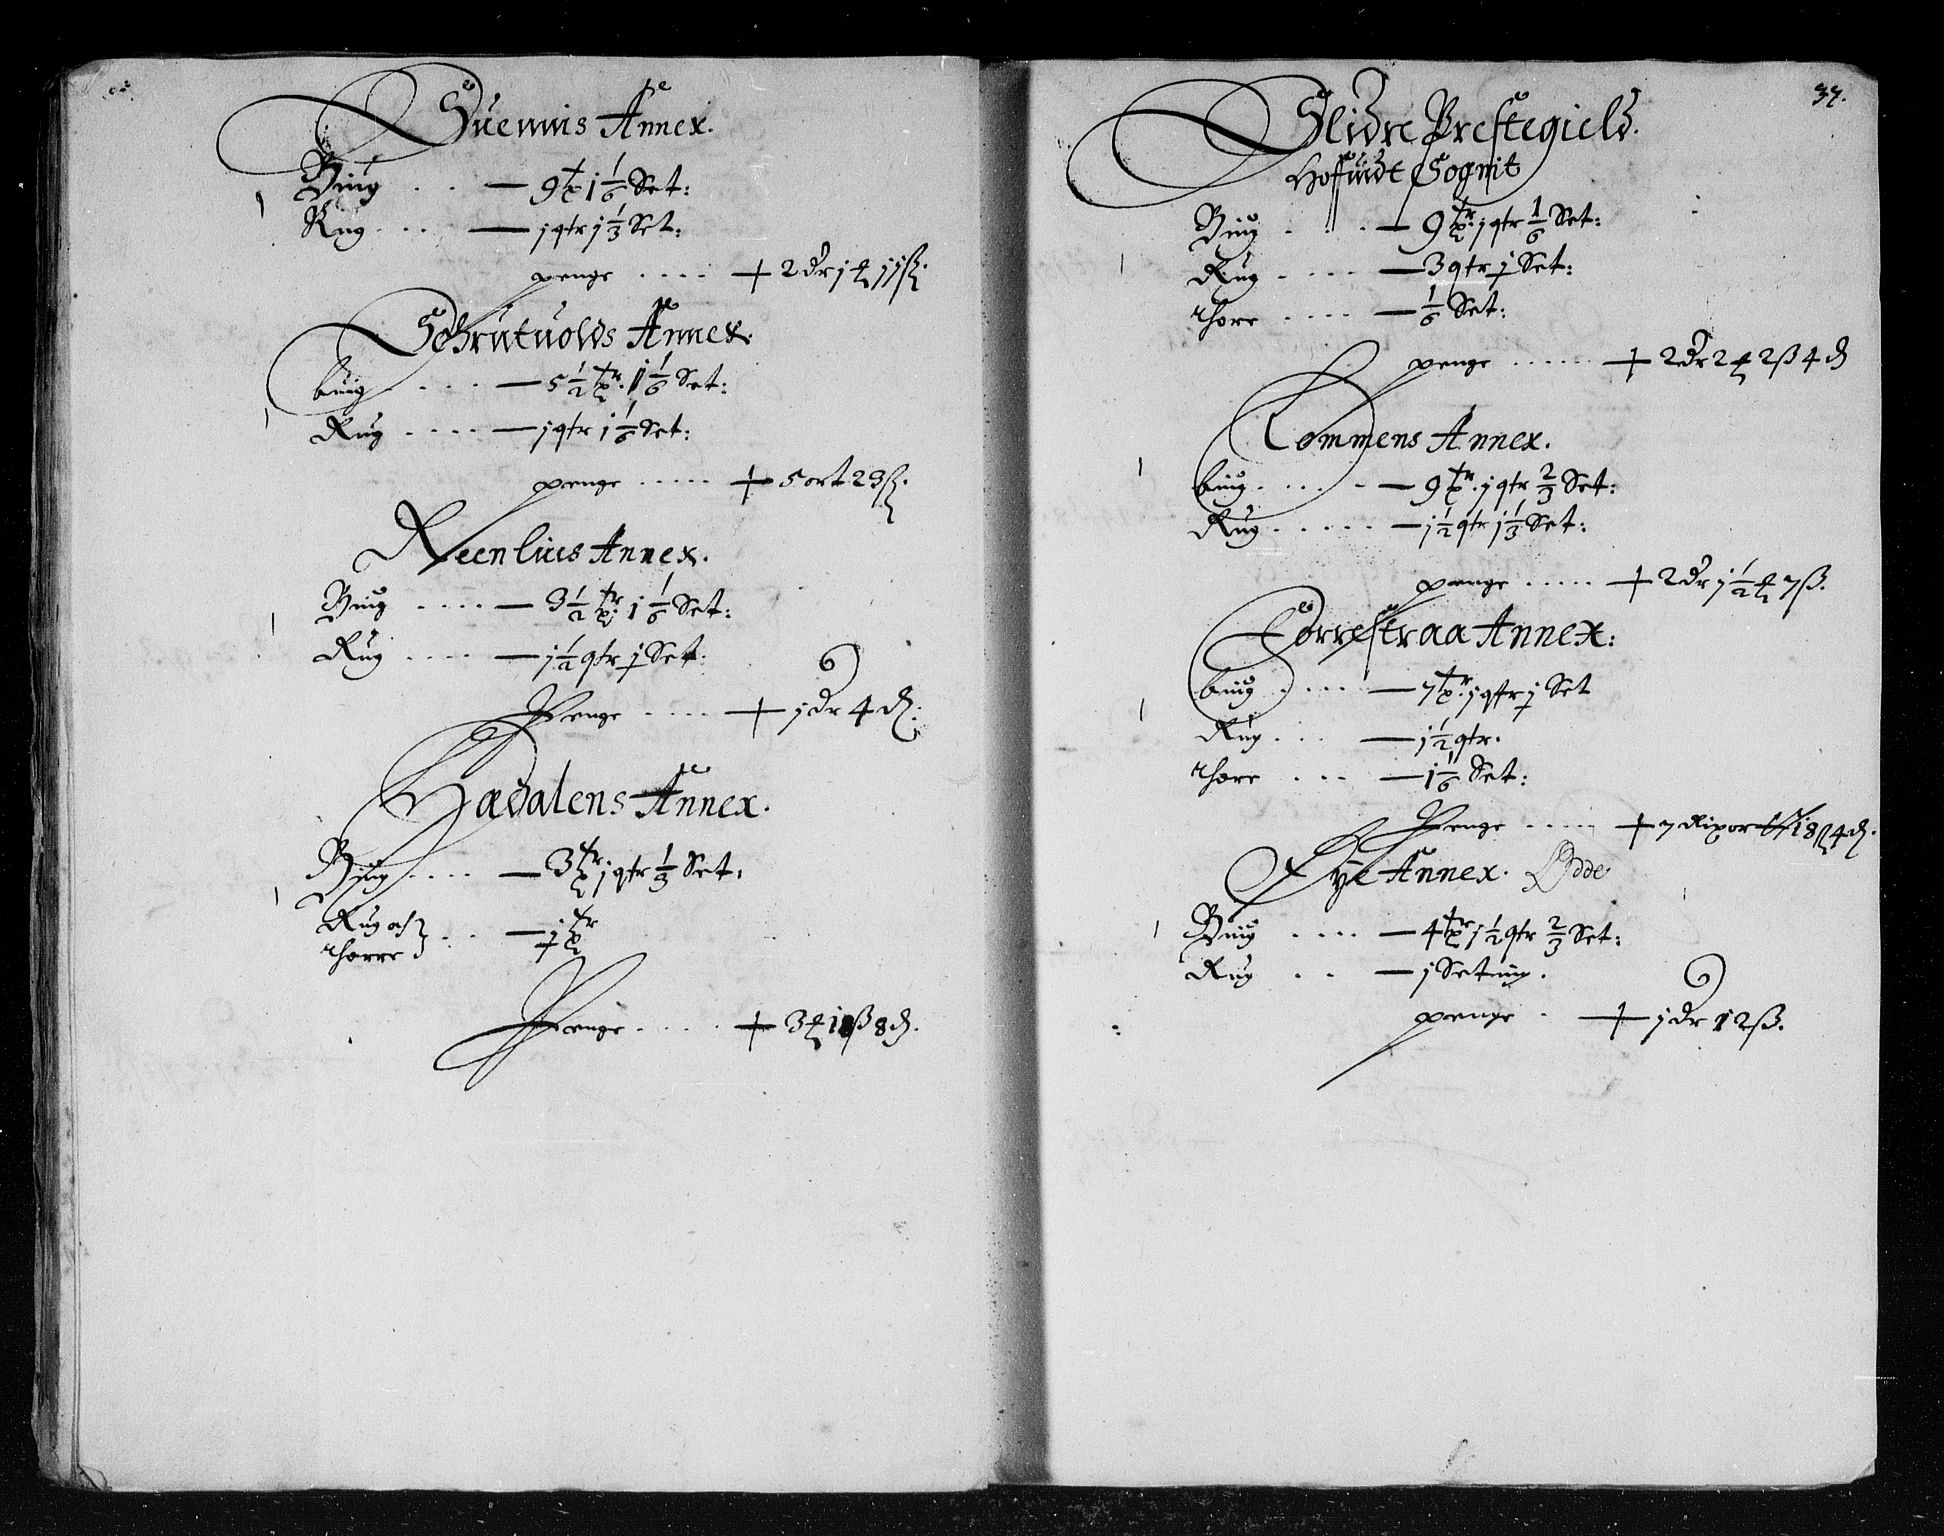 Suennis Annex.
Biug . . . — 9 tr 1 1/6 Set:
Rug . . . . — j qtr 1 1/3 Set:
penge . . . . + 2 dr j ℔ jj ß.
Schrutuolds Annex.
biug . . . . — 5 1/2 tr. 1 1/6 Set:
Rug . . . . — j qtr 1 1/6 Set:
penge . . . . . + 5 ort 23 ß.
Reenlius Annex.
Biug . . . . — 3 1/2 tr 1 1/6 Set:
Rug . . . . — j 1/2 qtr j Set.
Penge . . . . + j dr 4 d.
Hadalens Annex.
Biug . . . . — 3 tr j qtr 1/3 Set:
Rug och
thorre . . — j tr
Penge . . . . + 3 18 ß 8 d.
37.
Slidre Prestegield.
Hoffuidt Sognit
Biug . . . . — 9 tr. j qtr 1/6 Set:
Rug . . . . — 3 qtr j Set:
thore . . . . — 1/6 Set:
penge . . . . . + 2 dr 2 2 ß 4 d
Lommens Annex.
biug . . . . . — 9 tr. j qtr 2/3 Set:
Rug . . . . . — j 1/2 qtr 1 1/3 Set:
penge . . . . . + 2 dr j 1/2 7 ß.
Torrestraa Annex:
biug . . . . — 7 tr. j qtr j Set
Rug . . . — 1 1/2 qtr.
thore . . . — 1 1/6 Set:
Penge . . . . . + 7 Rixort 18 ß 4 d.
Fye Annex. Ødde
Biug . . . . — 4 tr j 1/2 qtr 2/3 Set:
Rug . . — j Seting.
penge . + j dr 12 ß.